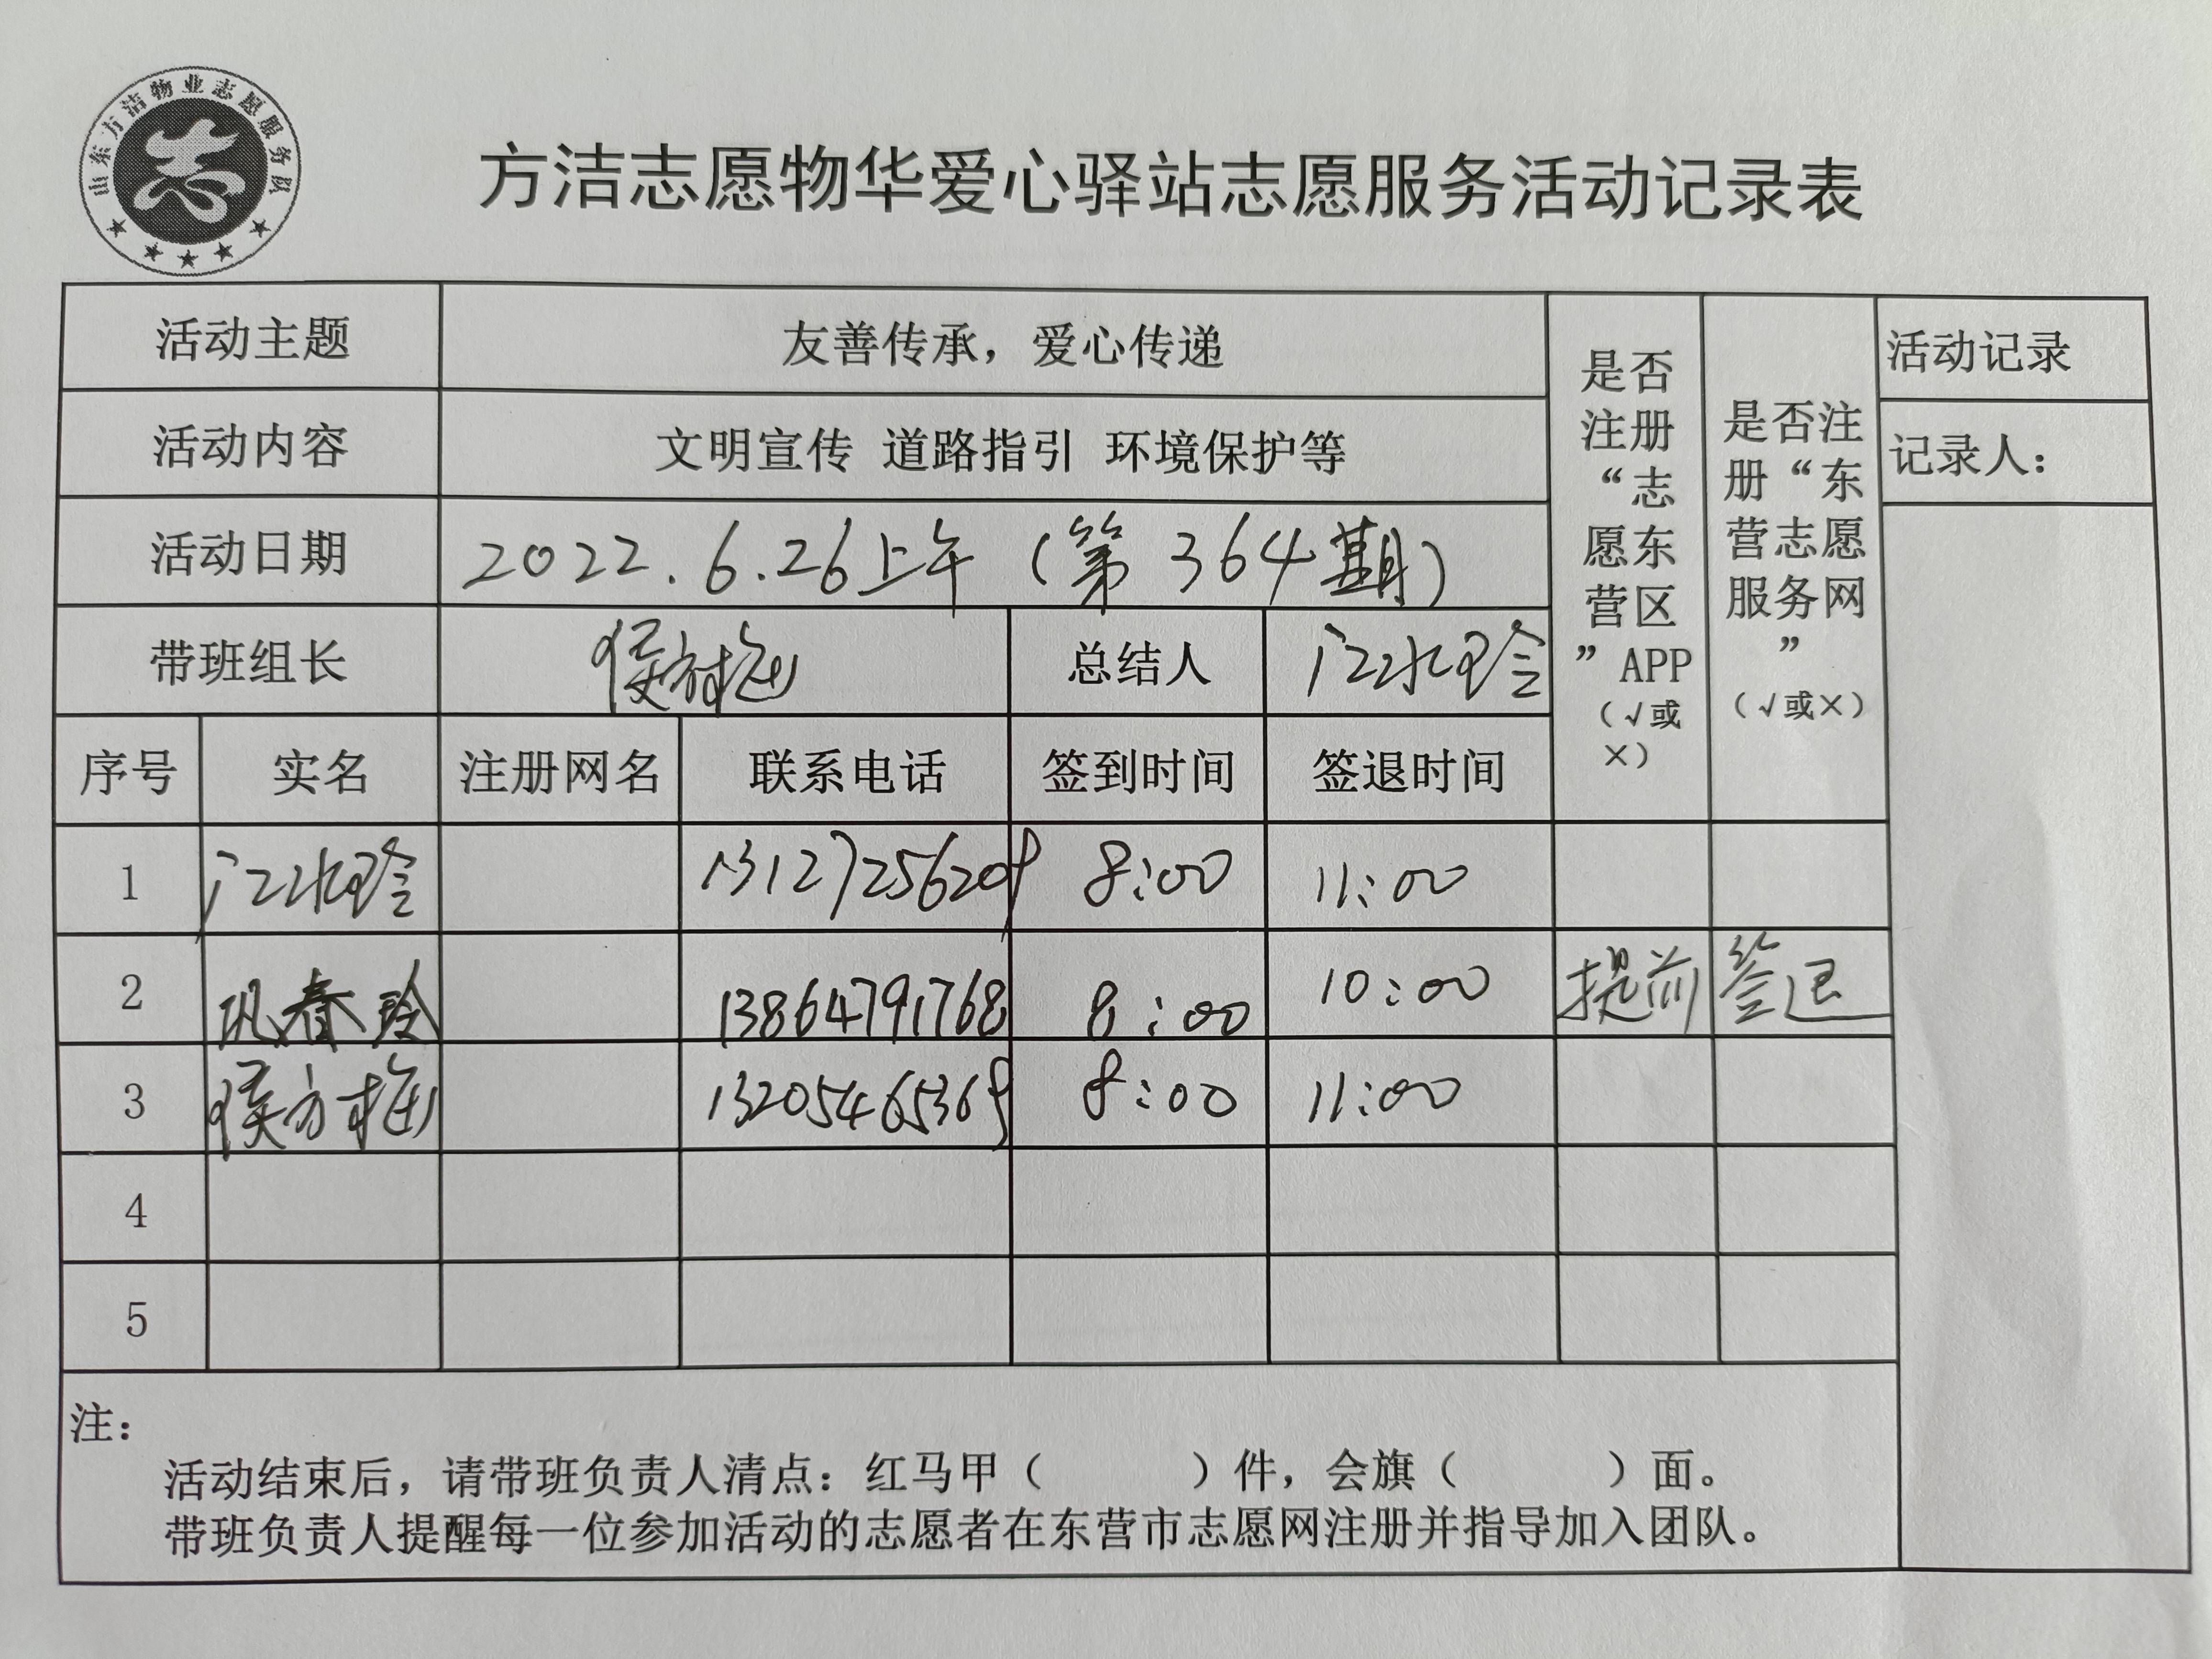 山东方洁物业志愿服务队
志
方洁志愿物华爱心驿站志愿服务活动记录表
活动主题 友善传承，爱心传递
活动内容 文明宣传 道路指引 环境保护等
活动日期 2022.6.26上午（第364期）
带班组长 侯方梅 总结人
是否注册“志愿东营区”APP（√或×）
是否注册“东营志愿服务网”（√或×）
活动记录
记录人：
序号 实名 注册网名 联系电话 签到时间 签退时间
1 13127256209 8:00 11:00
2 巩春玲 13864791768 8:00 10:00 提前 签退
3 侯方梅 13205465369 8:00 11:00
4
5
注：
活动结束后，请带班负责人清点：红马甲（ ）件，会旗（ ）面。
带班负责人提醒每一位参加活动的志愿者在东营市志愿网注册并指导加入团队。